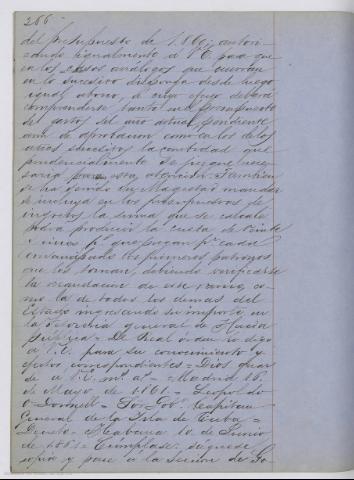 266
del Presupuesto de 1.860; autori-
zando igualmente á V.E. para que
en los casos análogos que ocurran
en lo sucesivo disponga desde luego
igual abono, á cuyo efecto deberá
comprenderse tanto en el presupuesto
de gastos del año actual, pendiente
aun de aprobacion como en los de los
años sucesivos la cantidad que
prudencialmente se juzgue nece-
saria para esta atencion. Tambien
se ha servido Su Magestad mandar
se incluya en los presupuestos de
ingresos la suma que se calcule
podrá producir la cuota de veinte
y cinco p.s que pagan p.r cada
emancipado los primeros patronos
que los toman, debiendo verificarse
la recaudacion de este ramo, co-
mo la de todos los demas del
Estado ingresando su importe en
la Tesorería general de Hacienda
pública = De Real orden lo digo
á V.E. para su conocimiento y
efectos correspondientes = Dios guar
de á V.E. m.s a.s = Madrid 16
de Mayo de 1861. = Leopoldo
O'Donnell = Sor. Gob.r Capitan
General de la Isla de Cuba =
Decreto = Habana 10 de Junio
de 1861 = Cúmplase: dejese
copia y pase á la Seccion de Fo-